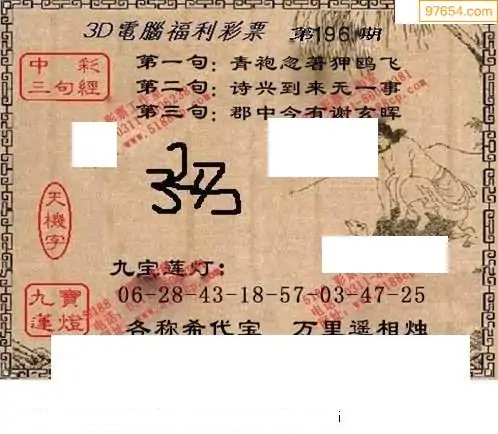 97654.com
3D電腦福利彩票 第196期
中彩
三句經
第一句：青袍忽著狎鸥飞
第二句：诗兴到来无一事
第三句：郡中今有谢玄晖
天機字
九宝莲灯：
九寶
蓮燈
06-28-43-18-57-03-47-25
各称希代宝 万里遥相烛
i